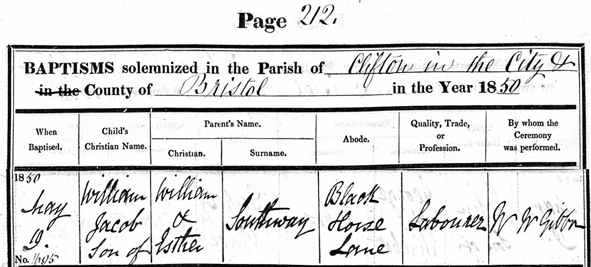 Page 212.
BAPTISMS solemnized in the Parish of Clifton in the City &
in the County of Bristol in the Year 1850
When Baptised. Child's Christian Name. Parent's Name. Christian. Surname. Abode. Quality, Trade, or Profession. By whom the Ceremony was performed.
1850
May
19.
No. 1695
William
Jacob
Son of
William
&
Esther
Southway
Black
Horse
Lane
Labourer
W W Gibbon